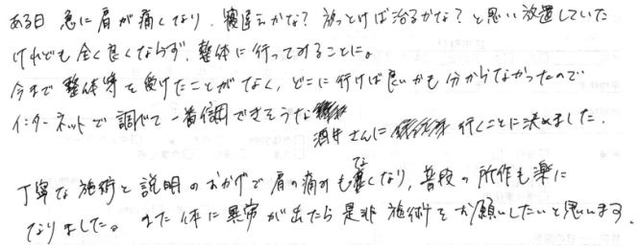 ある日 急に肩が痛くなり、寝違えかな？放っとけば治るかな？と思い放置していた
けれども全く良くならず、整体に行ってみることに。
今まで整体等を受けたことがなく、どこに行けば良いかも分からなかったので
インターネットで調べて一番信用できそうな
酒井さんに 行くことに決めました。
丁寧な施術と説明のおかげで肩の痛みも無くなり、普段の所作も楽に
なりました。また体に異常が出たら是非施術をお願いしたいと思います。